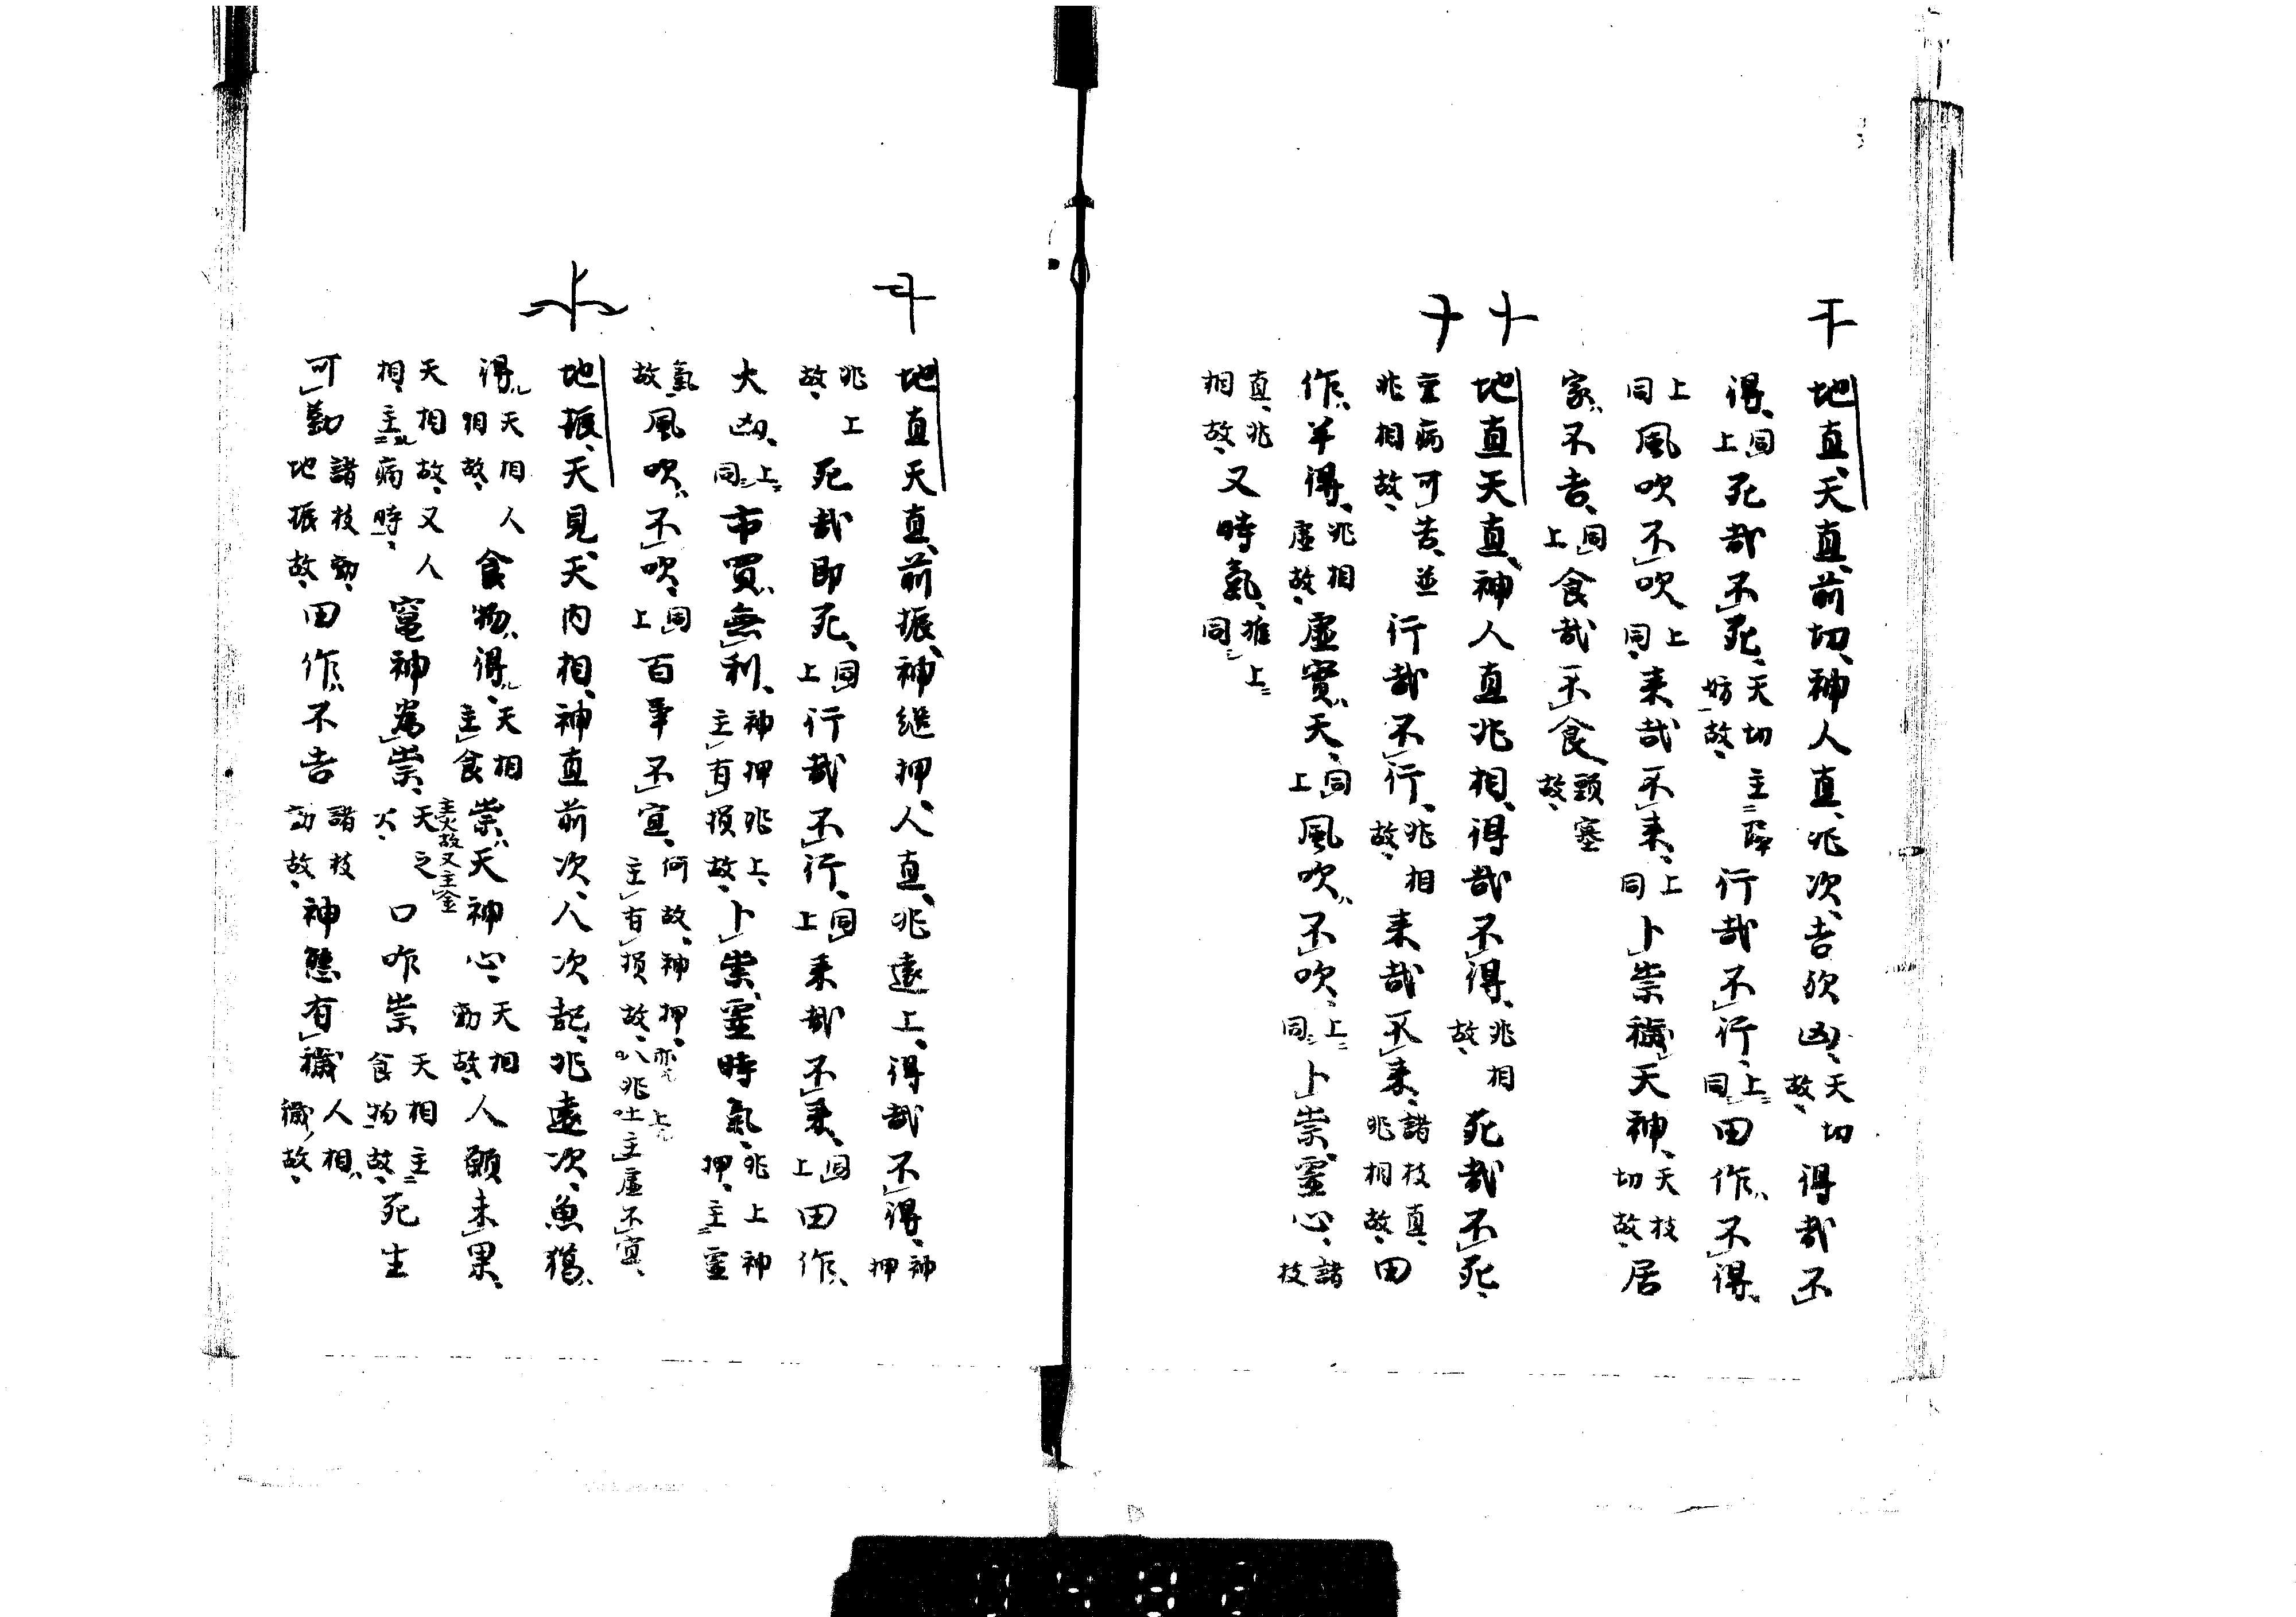 地直、天直、前切、神人直、兆次、吉欤凶、天切故、得哉不
得、同上死哉不死、天切主降妨故、行哉不行、上同田作、不得、
上同風吹不吹、上同来哉不来、上同卜祟穢天神、天枝切故、居
家、不吉、同上食哉不食頸塞故、
地直天直、神人直兆相、得哉不得、兆相故、死哉不死、
主病可苦、並兆相故、行哉不行、兆相故、来哉不来、諸枝真、兆相故、田
作、半得、兆相虚故、虚実、天、同上風吹、不吹、上同卜祟、霊心、諸枝
真、兆相故、又時氣、推上同
地直天直、前振、神継押、人直、兆遠上、得哉不得、神押
兆上故、死哉即死、同上行哉不行、同上来哉不来、同上田作、
大凶、上同市買、無利、神押兆上、主有損故、卜祟、霊時氣、兆上神押、主霊
氣故、風吹、不吹、同上百事不宜、何故、神押、主有損故、兆吐主虚不宜、
地振、天見天内相、神直前次、人次起、兆遠次、魚猟、
得、天相人相故、食物、得、天相主食祟、天神心、天相動故、人願未果、
天相故、又人相、主病時、竈神為祟、天之火、主火故又主釜口咋祟天相主食物故、死生
可勤諸枝動、地振故、田作、不吉諸枝動故、神態有穢人相、穢故、